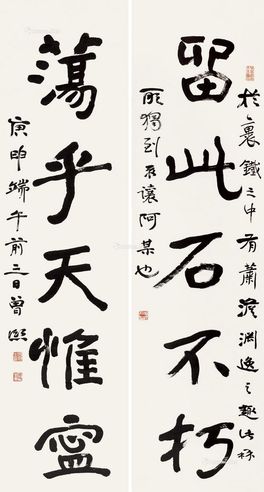 留此石不朽
蕩乎天惟寧
於裹鐵之中有蕭澹淵逸之趣此
所獨到不讓阿某也
庚申端午前三日曾熙